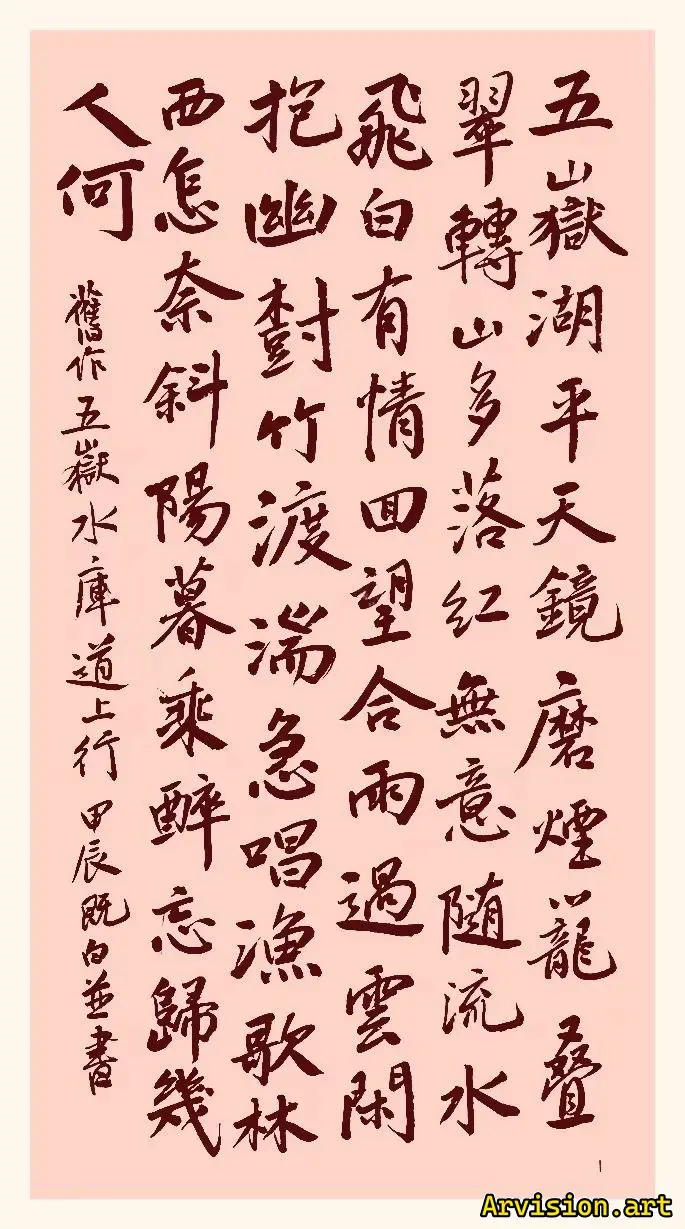 五嶽湖平天鏡磨煙籠疊
翠轉山多落紅無意隨流水
飛白有情回望合雨過雲閑
抱幽對竹渡湍急唱漁歌林
西怎奈斜陽暮乘醉忘歸幾
人何
舊作五嶽水庫道上行甲辰既白並書
Arvision.art